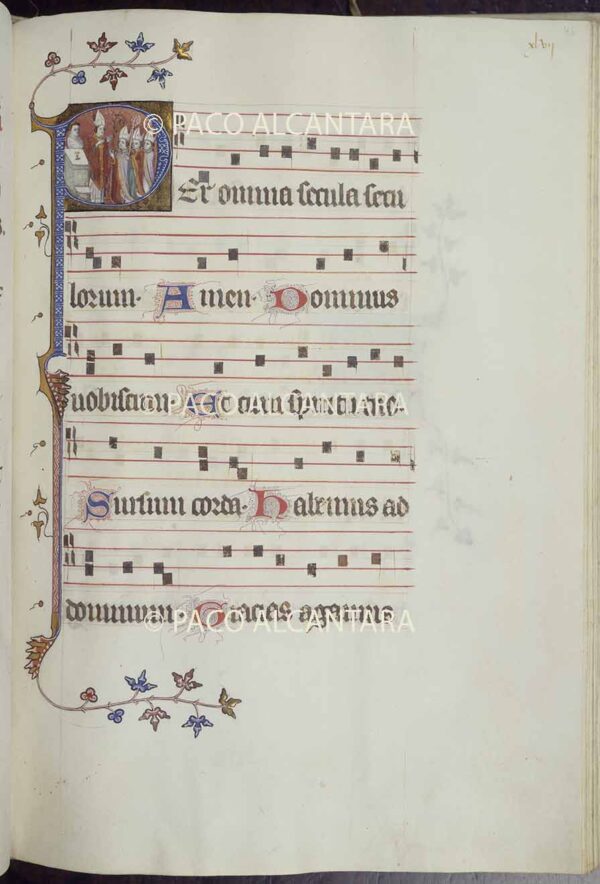 xlvij
© PACO ALCANTARA
Per omnia secula secu
lorum. Amen. Dominus
vobiscum. Et cum spiritu tuo.
© PACO ALCANTARA
Sursum corda. Habemus ad
dominum. Gracies agamus
© PACO ALCANTARA